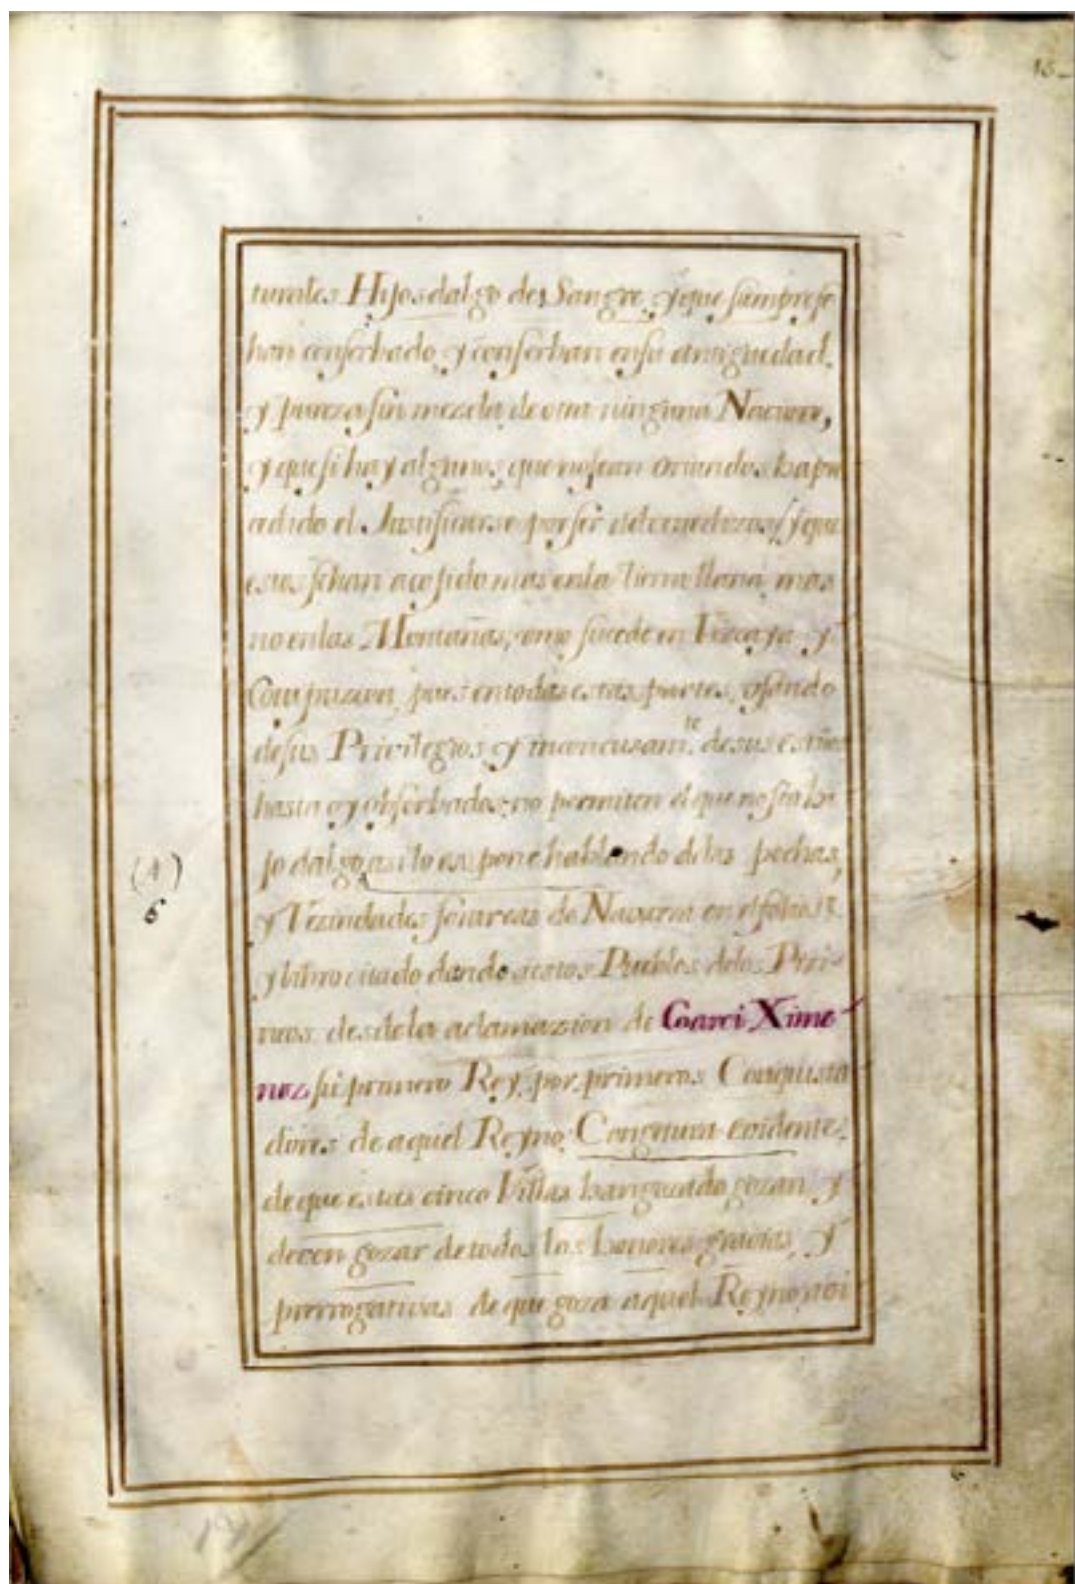 15
turales Hijosdalgo de Sangre, y que siempre se
han conserbado, y conserban en su antiguedad,
y pureza sin mezcla de otra ninguna Nacion,
y que si hay algunos, que no sean oriundos ha pro
cedido el Justificarse por ser y que
estos se han acojido mas en la tierra llana, mas
no en las Montañas, como sucede en Vizcaya y
Guipuzcoa, pues en todas estas partes, usando
de sus Privilegios, y inconcusam.te de sus
hasta oy obserbados, no permiten el que no sea hi
jo dalgo, asi lo expone hablando de las pechas,
y Vezindades foraneas de Navarra en el folio
y libro citado dando a estos Pueblos delos Piri-
neos desde la aclamazion de Garci Xime-
nez su primero Rey, por primeros Conquista
dores de aquel Reyno: Congetura evidente,
de que estas cinco Villas han gozado gozan, y
deven gozar de todos los honores gracias, y
prerrogativas de que goza aquel Reyno, noi
6